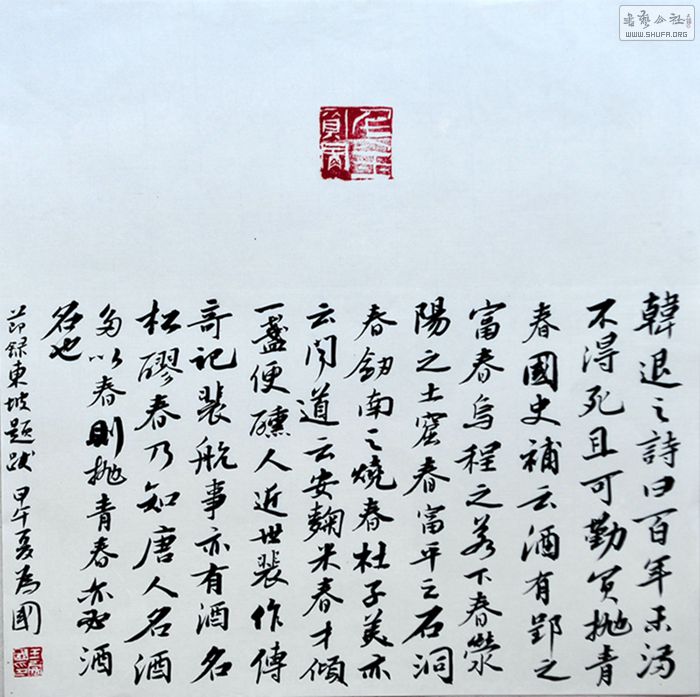 韓退之詩曰百年未满
不得死且可勤買抛青
春國史補云酒有郢之
富春烏程之若下春滎
陽之土窟春富平之石洞
春劔南之燒春杜子美亦
云闻道云安麹米春才傾
一盏便醺人近世裴作傳
奇記裴航事亦有酒名
松醪春乃知唐人名酒
多以春則抛青春亦必酒
名也
节録東坡题跋甲午夏為國
書藝公社
WWW.SHUFA.ORG